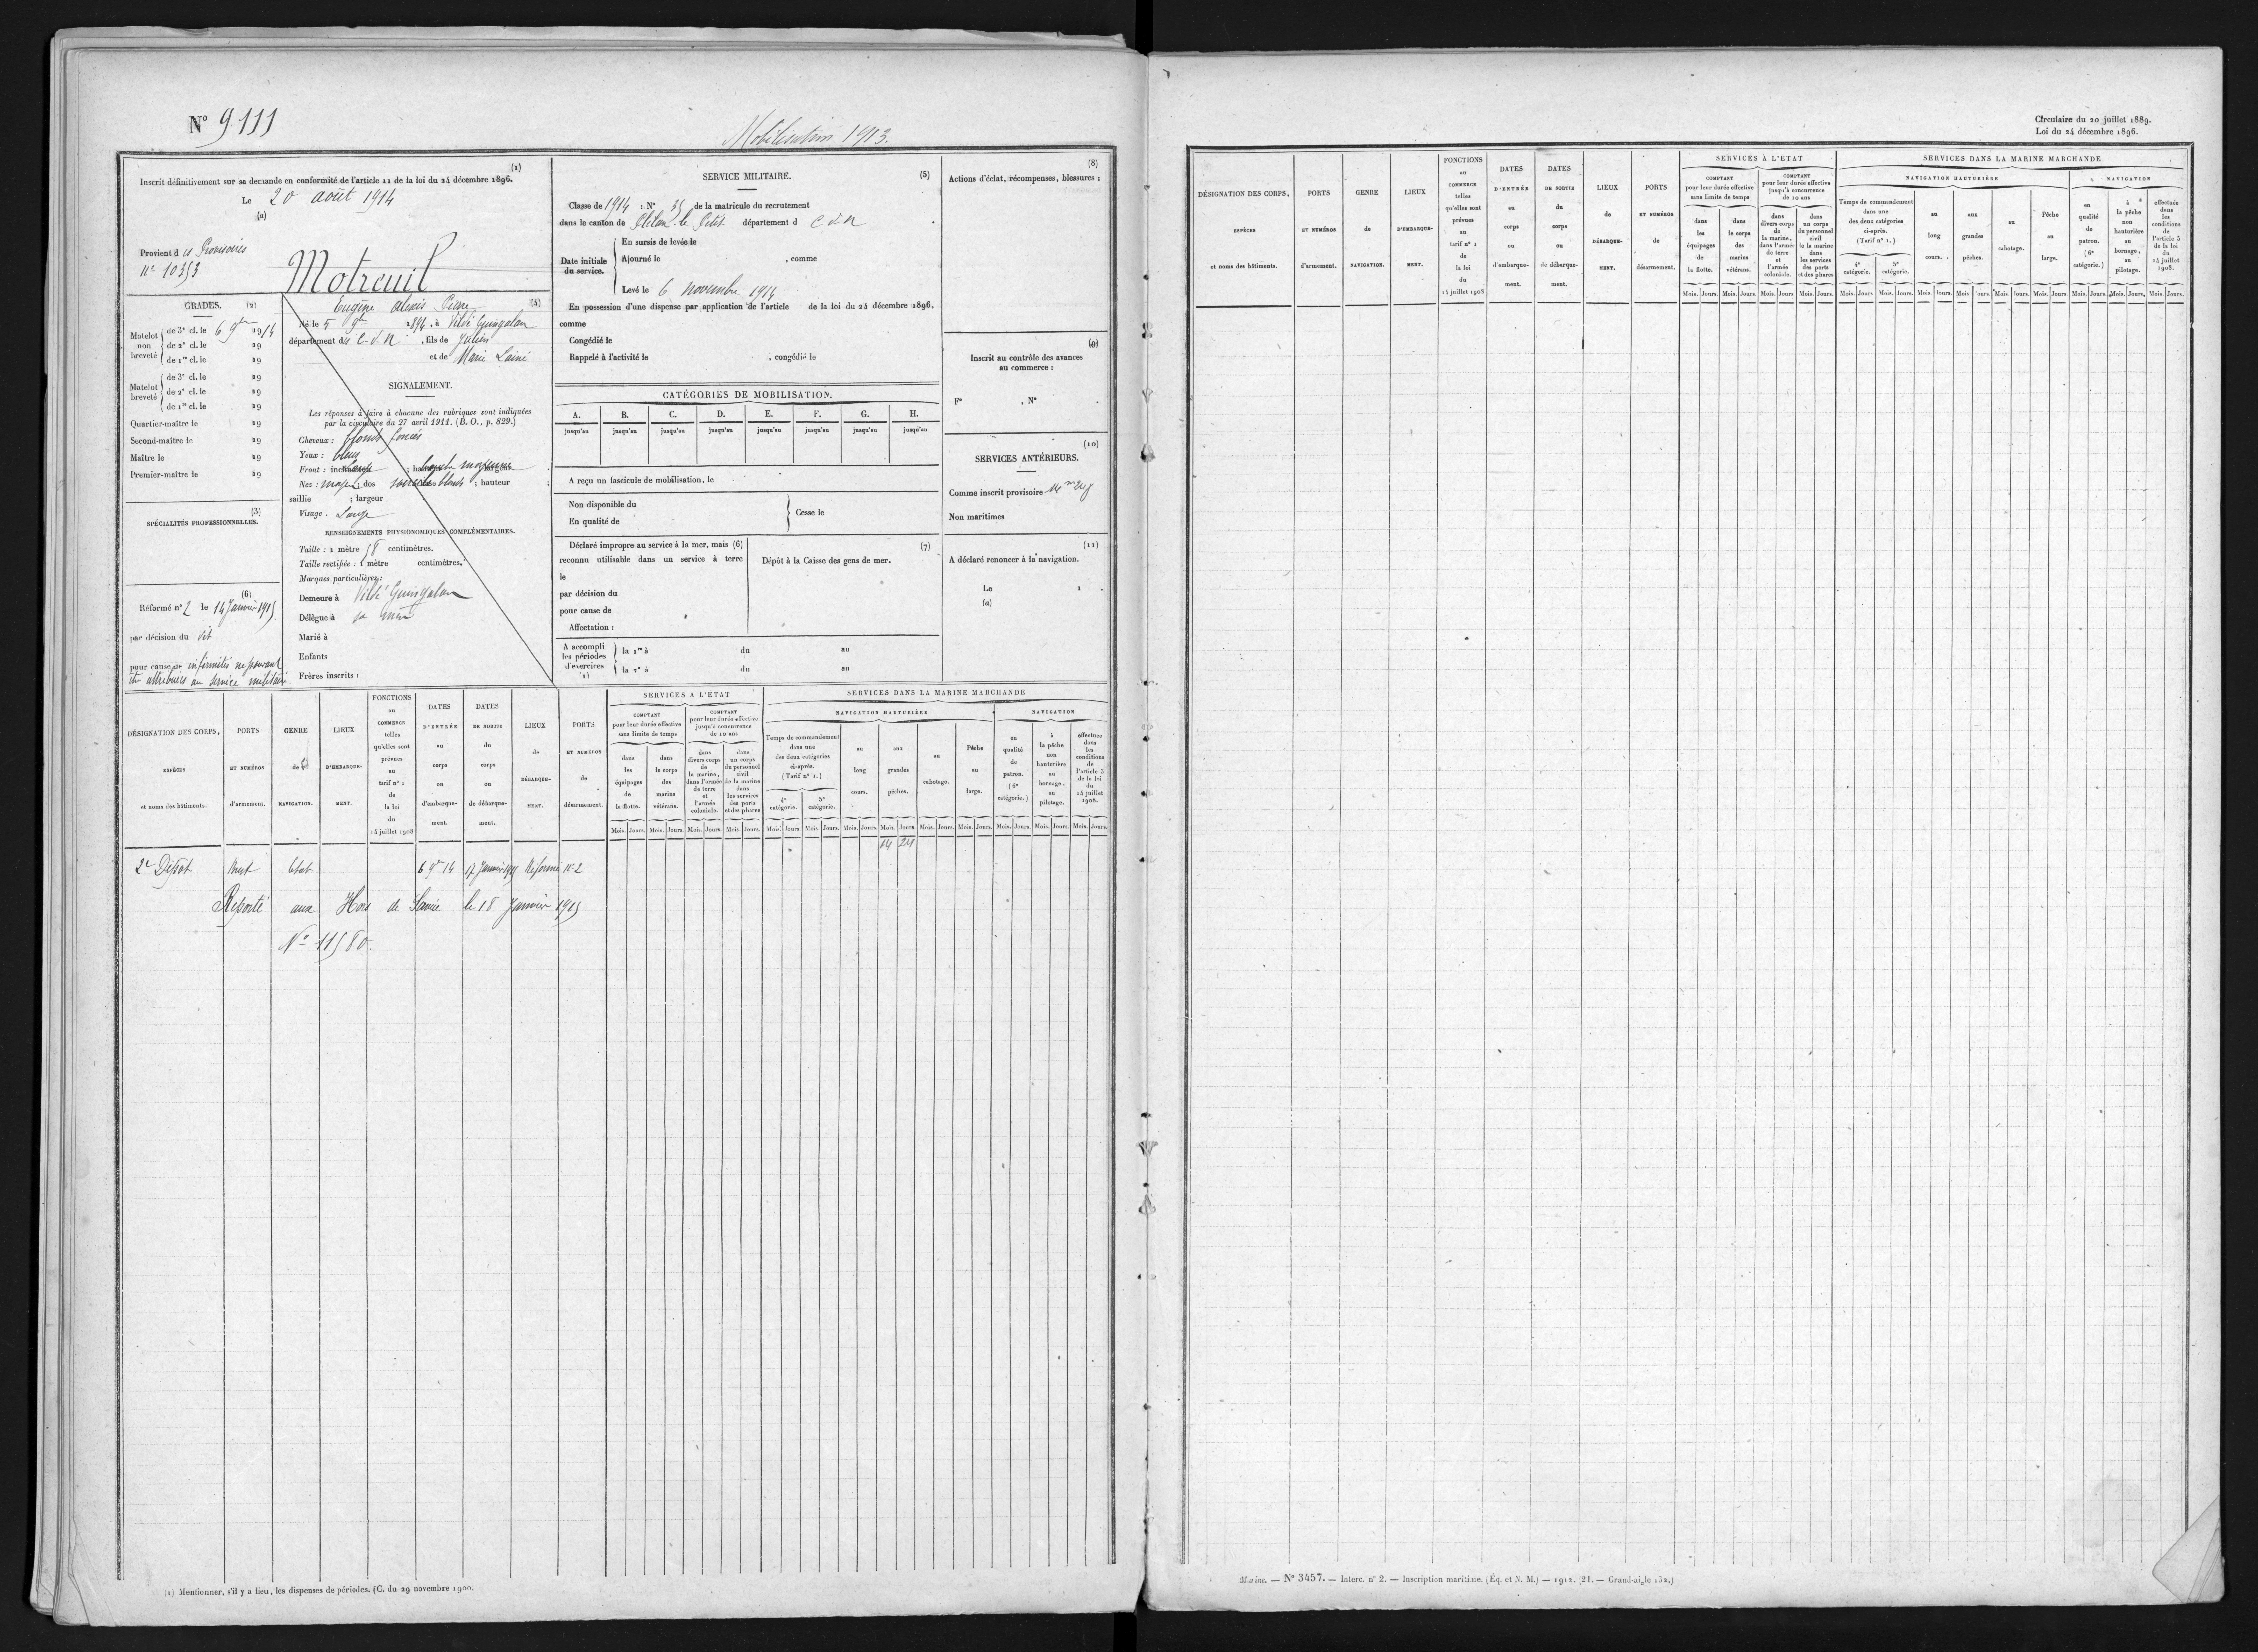 N° 9111
Mobilisation 1913.
(1)
Inscrit définitivement sur sa demande en conformité de l'article 11 de la loi du 24 décembre 1896.
Le 20 août 1914
(a)
Provient des Provisoires
N° 10353
Motreuil
Eugène Alexis Pierre (4)
Né le 5 9bre 1894, à Vildé Guingalan
département du C-d-N, fils de Julien
et de Marie Lainé
GRADES. (2)
Matelot non breveté
de 3e cl. le 6 9bre 1914
de 2e cl. le 19
de 1re cl. le 19
Matelot breveté
de 3e cl. le 19
de 2e cl. le 19
de 1re cl. le 19
Quartier-maître le 19
Second-maître le 19
Maître le 19
Premier-maître le 19
(3)
SPÉCIALITÉS PROFESSIONNELLES.
(6)
Réformé n° 2 le 14 Janvier 1915
par décision du dit
pour cause de infirmités ne pouvant
être attribuées au service militaire
SIGNALEMENT.
Les réponses à faire à chacune des rubriques sont indiquées
par la circulaire du 27 avril 1911. (B. O., p. 829.)
Cheveux : blonds foncés
Yeux : bleus
Front : ; bouche moyenne
Nez : moyen ; dos ; hauteur ;
saillie ; largeur
Visage. Large
RENSEIGNEMENTS PHYSIONOMIQUES COMPLÉMENTAIRES.
Taille : 1 mètre 58 centimètres.
Taille rectifiée : 1 mètre centimètres.
Marques particulières :
Demeure à Vildé Guingalan
Délègue à sa mère
Marié à
Enfants
Frères inscrits :
SERVICE MILITAIRE. (5)
Classe de 1914 : N° 35 de la matricule du recrutement
dans le canton de Plélan-le-Petit département d C. d. N
Date initiale du service.
En sursis de levée le
Ajourné le , comme
Levé le 6 novembre 1914
En possession d'une dispense par application de l'article de la loi du 24 décembre 1896.
comme
Congédié le
Rappelé à l'activité le , congédié le
CATÉGORIES DE MOBILISATION.
A. B. C. D. E. F. G. H.
jusqu'au jusqu'au jusqu'au jusqu'au jusqu'au jusqu'au jusqu'au jusqu'au
A reçu un fascicule de mobilisation, le
Non disponible du
En qualité de
Cesse le
Déclaré impropre au service à la mer, mais (6)
reconnu utilisable dans un service à terre
le
par décision du
pour cause de
Affectation :
(7)
Dépôt à la Caisse des gens de mer.
A accompli les périodes d'exercices (1)
la 1re à du au
la 2e à du au
(8)
Actions d'éclat, récompenses, blessures :
(9)
Inscrit au contrôle des avances
au commerce :
F° , N° .
(10)
SERVICES ANTÉRIEURS.
Comme inscrit provisoire
Non maritimes
(11)
A déclaré renoncer à la navigation.
Le 1 .
(a)
DÉSIGNATION DES CORPS, ESPÈCES et noms des bâtiments.
PORTS ET NUMÉROS d'armement.
GENRE de NAVIGATION.
LIEUX D'EMBARQUEMENT.
FONCTIONS au COMMERCE telles qu'elles sont prévues au tarif n° 1 de la loi du 14 juillet 1908
DATES D'ENTRÉE au corps ou d'embarquement.
DATES DE SORTIE du corps ou de débarquement.
LIEUX de DÉBARQUEMENT.
PORTS ET NUMÉROS de désarmement.
SERVICES À L'ETAT
COMPTANT pour leur durée effective sans limite de temps
dans les équipages de la flotte.
dans le corps des marins vétérans.
COMPTANT pour leur durée effective jusqu'à concurrence de 10 ans
dans divers corps de la marine, dans l'armée de terre et l'armée coloniale.
dans un corps du personnel civil de la marine dans les services des ports et des phares
SERVICES DANS LA MARINE MARCHANDE
NAVIGATION HAUTURIÈRE
Temps de commandement dans une des deux catégories ci-après. (Tarif n° 1.)
4e catégorie. 5e catégorie.
au long cours.
aux grandes pêches.
au cabotage.
Pêche au large.
NAVIGATION
en qualité de patron. (6e catégorie.)
à la pêche non hauturière au bornage, au pilotage.
effectuée dans les conditions de l'article 5 de la loi du 14 juillet 1908.
Mois. Jours. Mois. Jours. Mois. Jours. Mois. Jours. Mois. Jours. Mois. Jours. Mois. Jours. Mois. Jours. Mois. Jours. Mois. Jours. Mois. Jours. Mois. Jours. Mois. Jours.
14 24
2e Dépôt Brest Etat 6 9bre 14 17 Janvier 1915 Réforme N° 2
Reporté aux Hors de Service le 18 Janvier 1915
N° 11580.
(1) Mentionner, s'il y a lieu, les dispenses de périodes. (C. du 29 novembre 1900.
Circulaire du 20 juillet 1889.
Loi du 24 décembre 1896.
DÉSIGNATION DES CORPS, ESPÈCES et noms des bâtiments.
PORTS ET NUMÉROS d'armement.
GENRE de NAVIGATION.
LIEUX D'EMBARQUEMENT.
FONCTIONS au COMMERCE telles qu'elles sont prévues au tarif n° 1 de la loi du 14 juillet 1908
DATES D'ENTRÉE au corps ou d'embarquement.
DATES DE SORTIE du corps ou de débarquement.
LIEUX de DÉBARQUEMENT.
PORTS ET NUMÉROS de désarmement.
SERVICES À L'ETAT
COMPTANT pour leur durée effective sans limite de temps
dans les équipages de la flotte.
dans le corps des marins vétérans.
COMPTANT pour leur durée effective jusqu'à concurrence de 10 ans
dans divers corps de la marine, dans l'armée de terre et l'armée coloniale.
dans un corps du personnel civil de la marine dans les services des ports et des phares
SERVICES DANS LA MARINE MARCHANDE
NAVIGATION HAUTURIÈRE
Temps de commandement dans une des deux catégories ci-après. (Tarif n° 1.)
4e catégorie. 5e catégorie.
au long cours.
aux grandes pêches.
au cabotage.
Pêche au large.
NAVIGATION
en qualité de patron. (6e catégorie.)
à la pêche non hauturière au bornage, au pilotage.
effectuée dans les conditions de l'article 5 de la loi du 14 juillet 1908.
Mois. Jours. Mois. Jours. Mois. Jours. Mois. Jours. Mois. Jours. Mois. Jours. Mois. Jours. Mois. Jours. Mois. Jours. Mois. Jours. Mois. Jours. Mois. Jours. Mois. Jours.
Marine. — N° 3457. — Interc. n° 2. — Inscription maritime. (Éq. et N. M.) — 1912. (21. — Grand-aigle 152.)